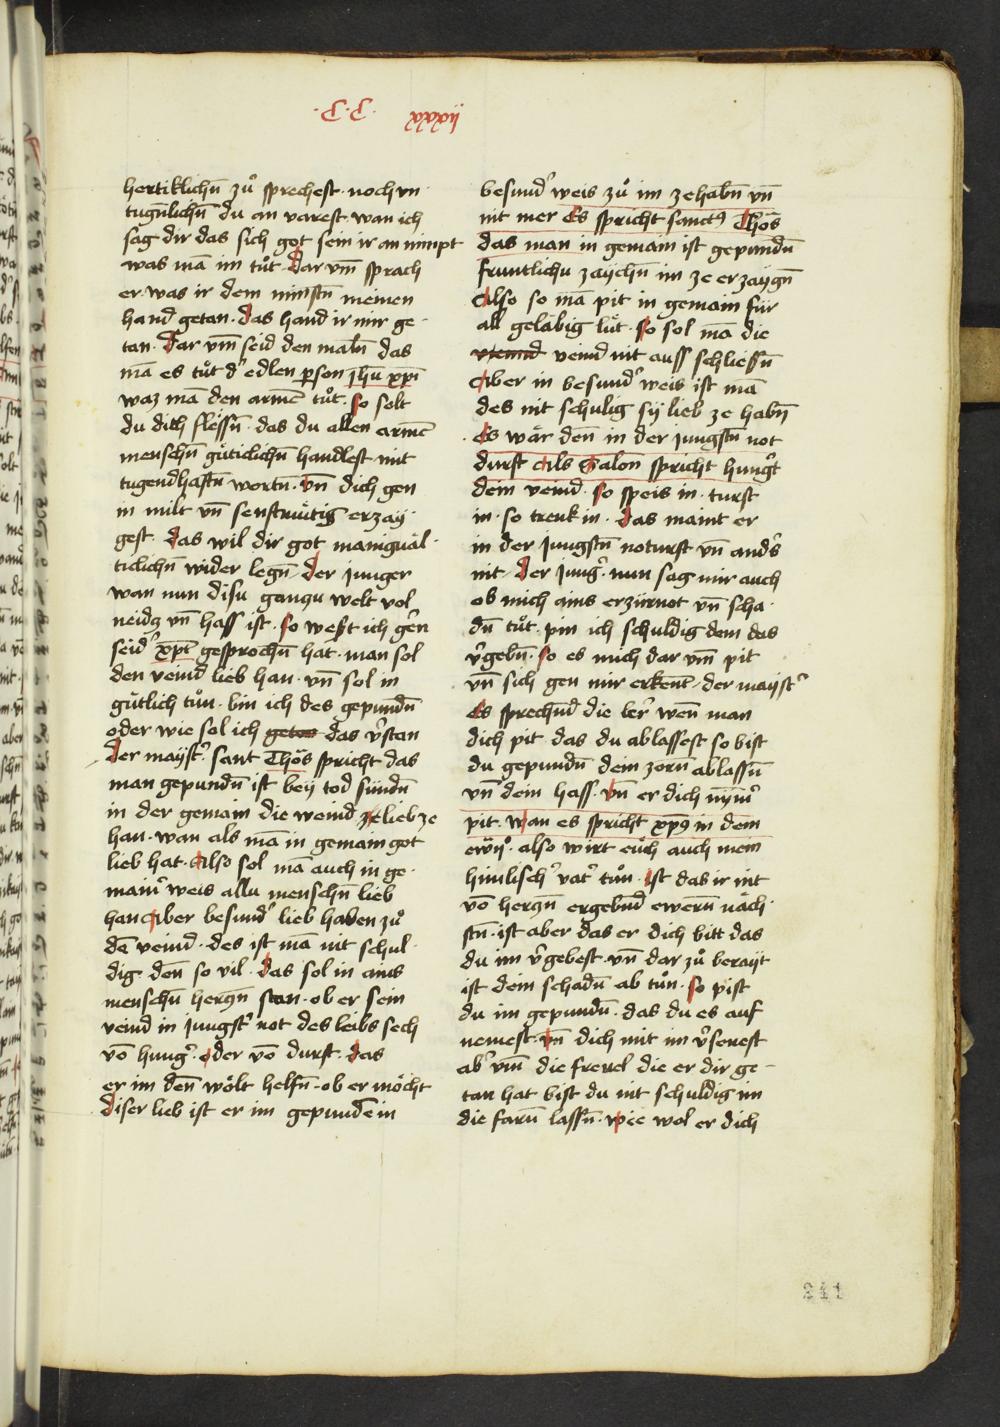 ·C·C· xxxij
hertiklichn̄ zuͦ sprechest · noch vn
tugn̄lichn̄ du an varest wan ich
sag dir das sich got sein ir an nimpt
was mā im tuͦt · Dar vm̄ sprach
er · was ir dem minstn̄ meinen
hand getan · das hand ir mir ge
tan · Dar vm̄ seid den maln̄ das
mā es tuͦt d' edlen pson jhū xp̄i
waz mā den armē tuͦt · so solt
du dich fleissn̄ · das du allen armē
menschn̄ guͤticlichn̄ handlest mit
tugendhaftn̄ wortn̄ · vn̄ dich gen
in milt vn̄ senftmuͤtig erzay
gest · das wil dir got manigual
ticlichn̄ wider legn̄ · der junger
wan nun disu gangu welt vol
neidz vn̄ hass ist · so west ich ger'n
seid' xp̄c gesprochn̄ hat · man sol
den veind lieb han · vn̄ sol in
guͤtlich tuͦn · bin ich des gepundn̄
oder wie sol ich getan das v'stan
Der mayst' · sant Thōs spricht das
man gepundn̄ ist bey tod sundn̄
in der gemain die veind ze lieb ze
han · wan als mā in gemain got
lieb hat · Also sol mā auch in ge
main' weis allu menschn̄ lieb
han Aber besund' lieb haben zuͦ
dē veind · des ist mā nit schul
dig · den̄ so vil · das sol in ains
menschn̄ herczn̄ stan · ob er sein
veind in jungst' not des leibs sech
vō hung' · oder vō durst · das
er im den̄ woͤlt helfn̄ · ob er moͤcht
diser lieb ist er im gepunden in
besund' weis zuͦ im ze habn̄ vn̄
nit mer Es spricht sanctꝰ Thōs
das man in gemain ist gepundn̄
fruntlichu zaychn̄ im ze erzaygn̄
Also so mā pit in gemain fuͤr
all gelaͤbig luͤt · so sol mā die
veind veind nit auss schliessn̄
Aber in besund' weis ist mā
des nit schulig sy lieb ze habn̄
Es waͤr den̄ in der jungstn̄ not
durft Als Salon̄ spricht hung't
dein veind · so speis in · turst
in · so trenk in · das maint er
in der jungstn̄ noturft vn̄ and's
nit · Der jung' · nun sag mir auch
ob mich ains erzurnot vn̄ scha
dn̄ tuͦt · pin ich schuldig dem das
v'gebn̄ · so es mich dar vm̄ pit
vn̄ sich gen mir erkent · der mayst'
Es sprechnd die ler' wen̄ man
dich pit das du ablassest so bist
du gepundn̄ dein zorn̄ ablassn̄
vn̄ dein hass · vn̄ er dich nym'
pit · wan es spricht xp̄ꝰ in dem
ew̄ · also wirt eu͂ch auch mein
himlisch' vat' tuͦn · ist das ir nit
vō herczn̄ ergebnd ewern̄ naͤch
stn̄ · ist aber das er dich bitt das
du im v'gebest · vn̄ dar zuͦ berayt
ist dein schadn̄ ab tuͦn · so pist
du im gepundn̄ · das du es auf
nemest · vn̄ dich mit im v'senest
ab' vm̄ die freuel die er dir ge
tan hat bist du nit schuldig im
die farn̄ lassn̄ · wie wol er dich
241